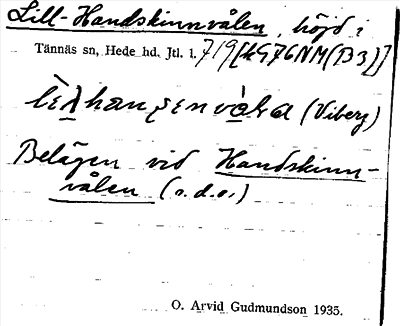 Lill-Handskinnvålen, höjd i
Tännäs sn, Hede hd, Jtl. l. 719 [4976NM(B3)]
(Viberg)
Belägen vid Handskinn-
vålen (s.d.o.)
O. Arvid Gudmundson 1935.